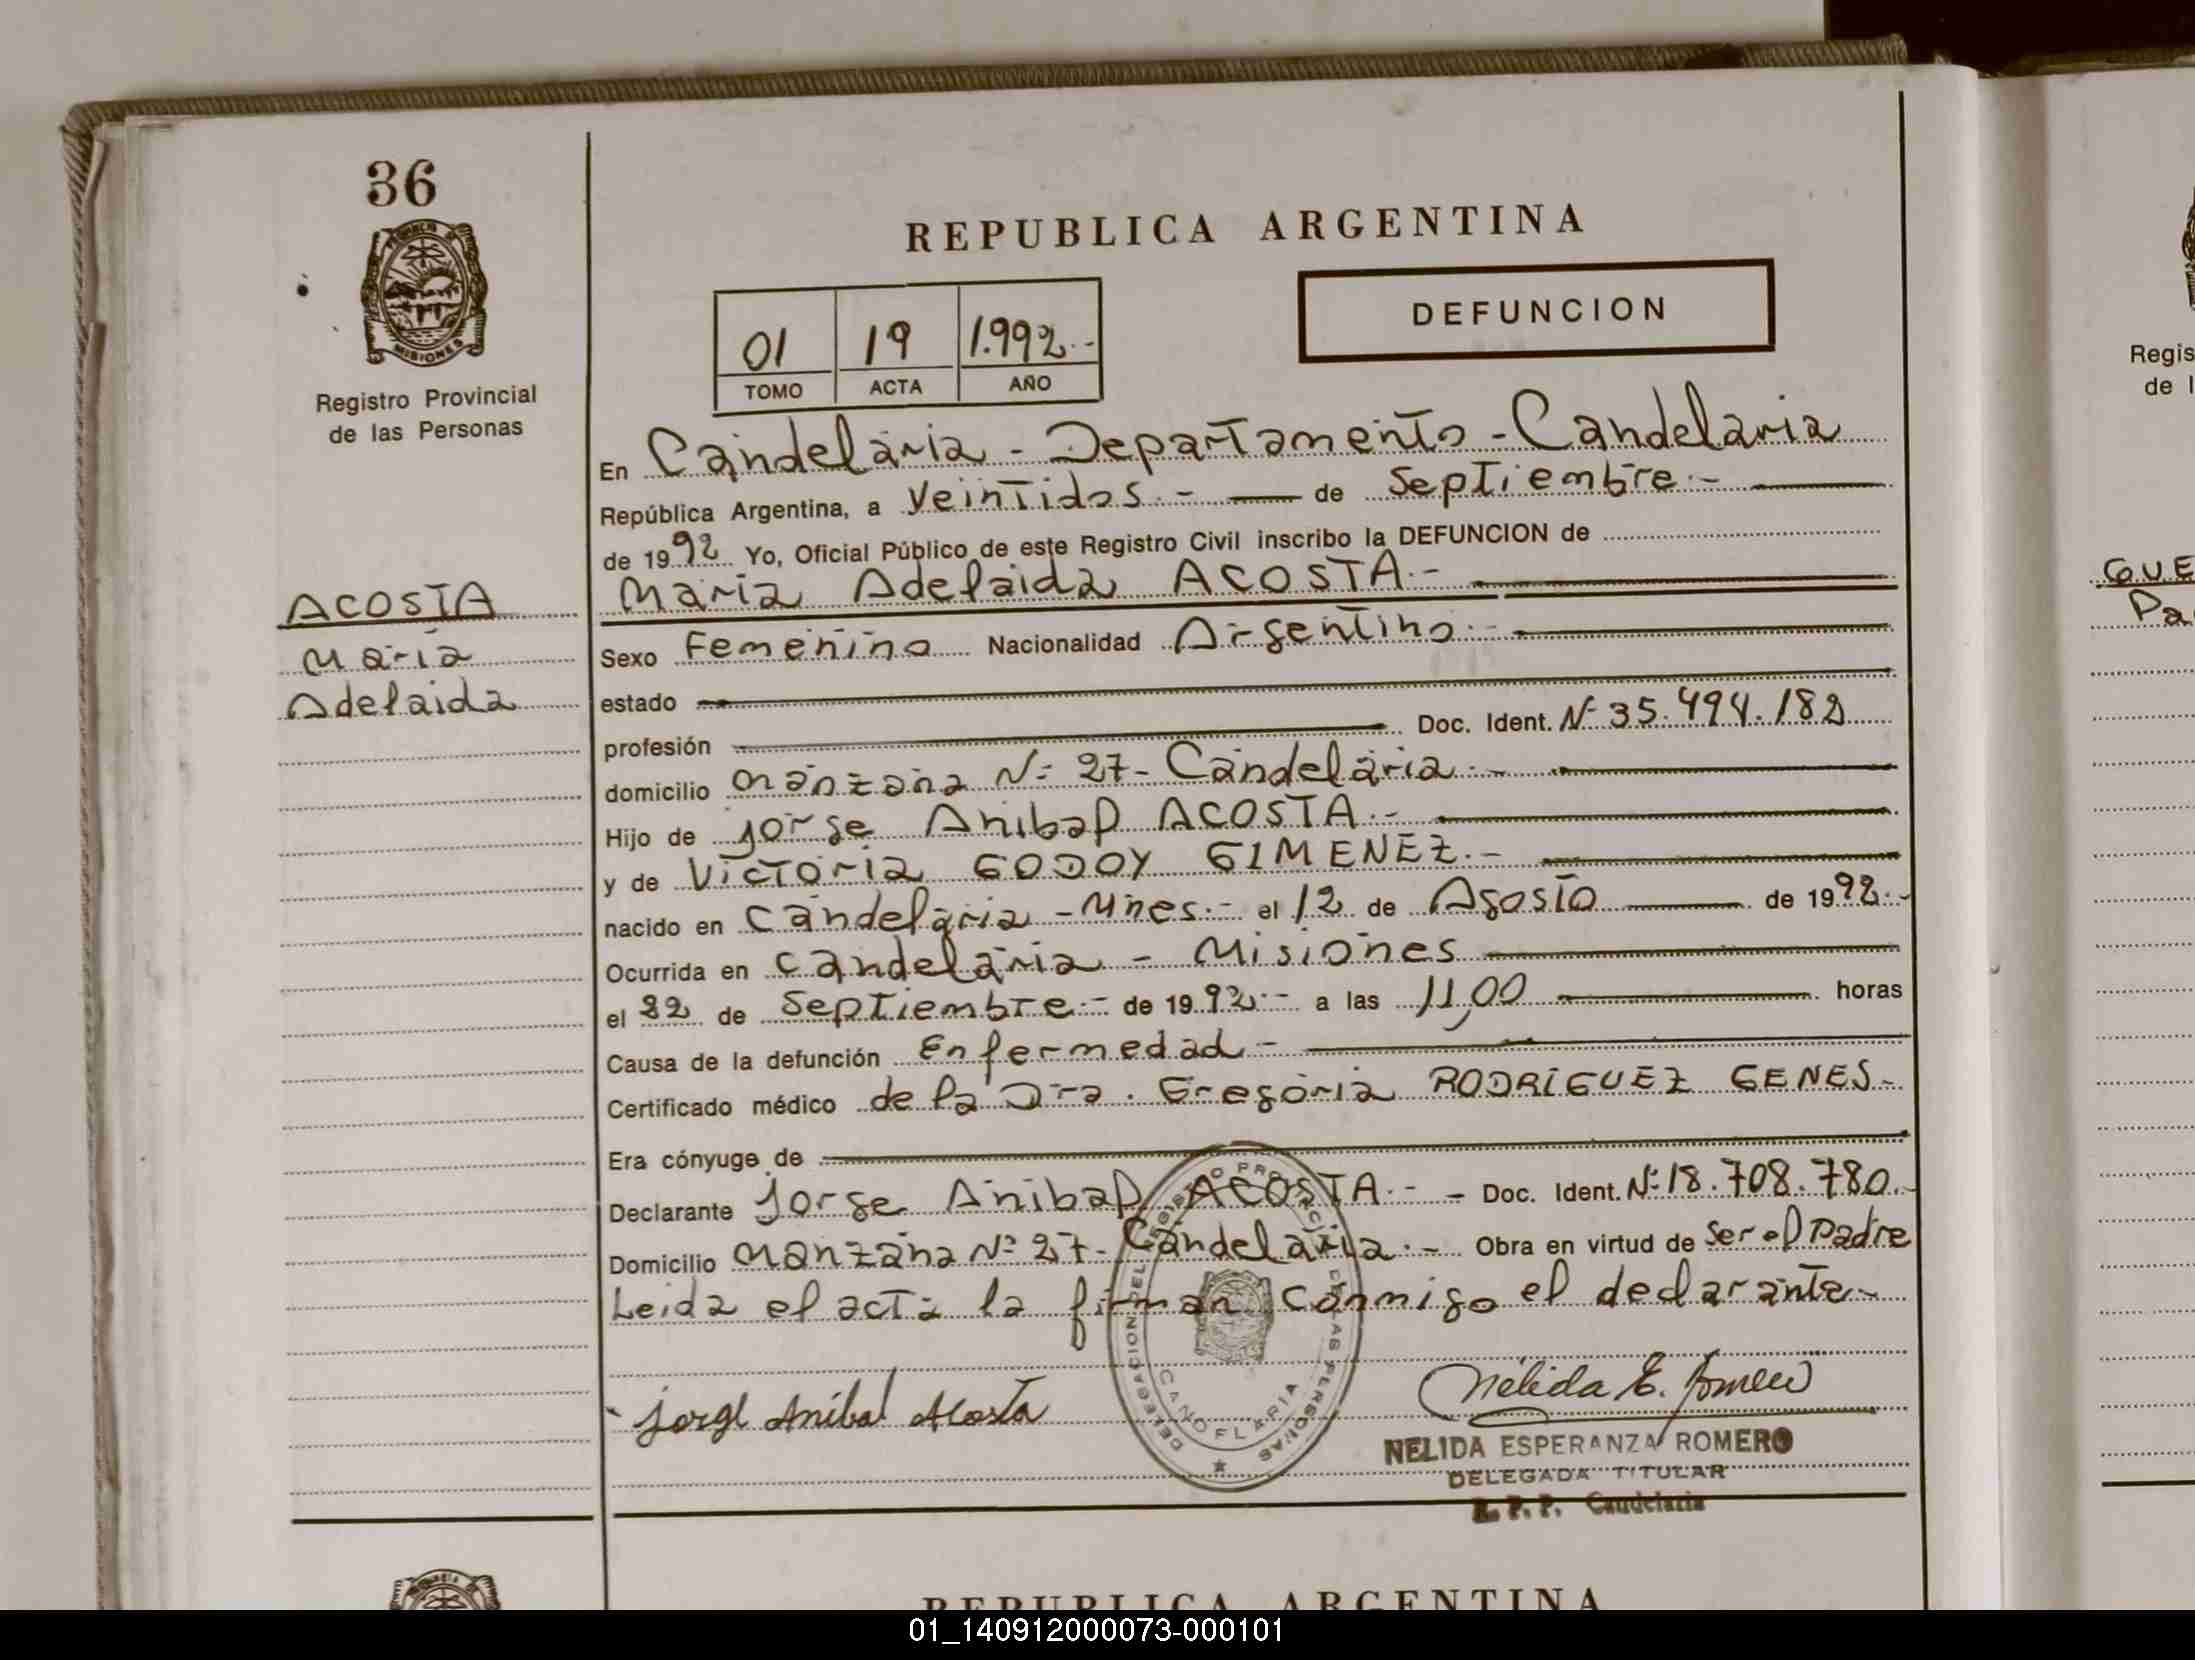 36
PROVINCIA DE
MISIONES
Registro Provincial
de las Personas
ACOSTA
Maria
Adelaida
REPUBLICA ARGENTINA
01 19 1.992.-
TOMO ACTA AÑO
DEFUNCION
En Candelaria - Departamento - Candelaria
República Argentina, a Veintidos.- de Septiembre.-
de 1992 Yo, Oficial Público de este Registro Civil inscribo la DEFUNCION de
Maria Adelaida ACOSTA.-
Sexo Femenino Nacionalidad Argentino.-
estado
profesión Doc. Ident. Nº 35.494.182
domicilio Manzana Nº 27- Candelaria.-
Hijo de Jorge Anibal ACOSTA.-
y de Victoria GODOY GIMENEZ.-
nacido en Candelaria - Mnes.- el 12 de Agosto de 1992.-
Ocurrida en Candelaria - Misiones
el 22 de Septiembre.- de 1992.- a las 11,00 horas
Causa de la defunción Enfermedad-
Certificado médico de la Dra. Gregoria RODRIGUEZ GENES-
Era cónyuge de
Declarante Jorge Anibal ACOSTA.- - Doc. Ident. Nº 18.708.780.-
Domicilio Manzana Nº 27- Candelaria.- Obra en virtud de Ser el Padre
Leida el acta la firman conmigo el declarante-
DELEGACION DEL REGISTRO PROVINCIAL DE LAS PERSONAS
Jorge Anibal Acosta
Nélida E. Romero
NELIDA ESPERANZA ROMERO
DELEGADA TITULAR
R. P. P. Candelaria
REPUBLICA ARGENTINA
Regis
de l
GUE
Pa
01_140912000073-000101